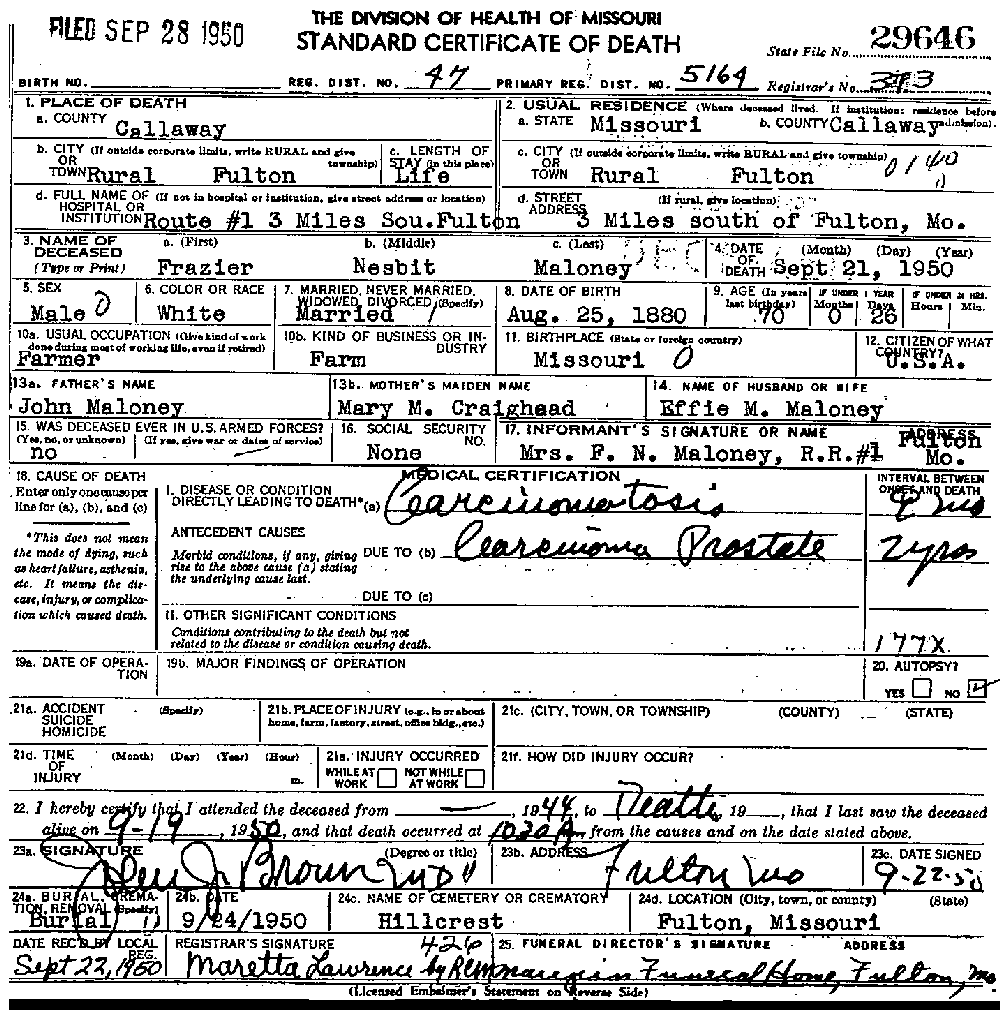 FILED SEP 28 1950
THE DIVISION OF HEALTH OF MISSOURI
STANDARD CERTIFICATE OF DEATH
State File No. 29646
BIRTH NO. REG. DIST. NO. 47 PRIMARY REG. DIST. NO. 5164 Registrar's No. 373
1. PLACE OF DEATH
a. COUNTY Callaway
2. USUAL RESIDENCE (Where deceased lived. If institution: residence before admission).
a. STATE Missouri b. COUNTY Callaway
b. CITY (If outside corporate limits, write RURAL and give township)
OR
TOWN Rural Fulton
c. LENGTH OF
STAY (in this place)
Life
c. CITY (If outside corporate limits, write RURAL and give township)
OR
TOWN Rural Fulton
0140
d. FULL NAME OF (If not in hospital or institution, give street address or location)
HOSPITAL OR
INSTITUTION Route #1 3 Miles Sou.Fulton
d. STREET (If rural, give location)
ADDRESS 3 Miles south of Fulton, Mo.
3. NAME OF DECEASED
(Type or Print)
a. (First) b. (Middle) c. (Last)
Frazier Nesbit Maloney
4. DATE OF DEATH (Month) (Day) (Year)
Sept 21, 1950
5. SEX
Male 0
6. COLOR OR RACE
White
7. MARRIED, NEVER MARRIED,
WIDOWED, DIVORCED (Specify)
Married 1
8. DATE OF BIRTH
Aug. 25, 1880
9. AGE (In years last birthday) IF UNDER 1 YEAR Months Days IF UNDER 24 HRS. Hours Min.
70 0 26
10a. USUAL OCCUPATION (Give kind of work
done during most of working life, even if retired)
Farmer
10b. KIND OF BUSINESS OR INDUSTRY
Farm
11. BIRTHPLACE (State or foreign country)
Missouri 0
12. CITIZEN OF WHAT
COUNTRY?
U.S.A.
13a. FATHER'S NAME
John Maloney
13b. MOTHER'S MAIDEN NAME
Mary M. Craighead
14. NAME OF HUSBAND OR WIFE
Effie M. Maloney
15. WAS DECEASED EVER IN U.S. ARMED FORCES?
(Yes, no, or unknown) (If yes, give war or dates of service)
no
16. SOCIAL SECURITY
NO.
None
17. INFORMANT'S SIGNATURE OR NAME ADDRESS
Mrs. F. N. Maloney, R.R.#1 Fulton Mo.
18. CAUSE OF DEATH
Enter only one cause per
line for (a), (b), and (c)
*This does not mean
the mode of dying, such
as heart failure, asthenia,
etc. It means the dis-
ease, injury, or complica-
tion which caused death.
MEDICAL CERTIFICATION
I. DISEASE OR CONDITION
DIRECTLY LEADING TO DEATH*(a) Carcinomatosis
ANTECEDENT CAUSES
Morbid conditions, if any, giving
rise to the above cause (a) stating
the underlying cause last.
DUE TO (b) Carcinoma Prostate
DUE TO (c)
INTERVAL BETWEEN
ONSET AND DEATH
mo
2 yros
II. OTHER SIGNIFICANT CONDITIONS
Conditions contributing to the death but not
related to the disease or condition causing death.
177X
19a. DATE OF OPERA-
TION
19b. MAJOR FINDINGS OF OPERATION
20. AUTOPSY?
YES NO
21a. ACCIDENT (Specify)
SUICIDE
HOMICIDE
21b. PLACE OF INJURY (e.g., in or about
home, farm, factory, street, office bldg., etc.)
21c. (CITY, TOWN, OR TOWNSHIP) (COUNTY) (STATE)
21d. TIME (Month) (Day) (Year) (Hour)
OF
INJURY m.
21e. INJURY OCCURRED
WHILE AT WORK NOT WHILE AT WORK
21f. HOW DID INJURY OCCUR?
22. I hereby certify that I attended the deceased from , 1944, to Death, 19 , that I last saw the deceased
alive on 9-19, 1950, and that death occurred at 1030 A m., from the causes and on the date stated above.
23a. SIGNATURE (Degree or title)
J Brown MD
23b. ADDRESS
Fulton Mo
23c. DATE SIGNED
9-22-50
24a. BURIAL, CREMA-
TION, REMOVAL (Specify)
Burial
24b. DATE
9/24/1950
24c. NAME OF CEMETERY OR CREMATORY
Hillcrest
24d. LOCATION (City, town, or county) (State)
Fulton, Missouri
DATE REC'D BY LOCAL
REG.
Sept 22, 1950
REGISTRAR'S SIGNATURE 426
Maretta Lawrence by
25. FUNERAL DIRECTOR'S SIGNATURE ADDRESS
Funeral Home, Fulton, Mo.
(Licensed Embalmer's Statement on Reverse Side)